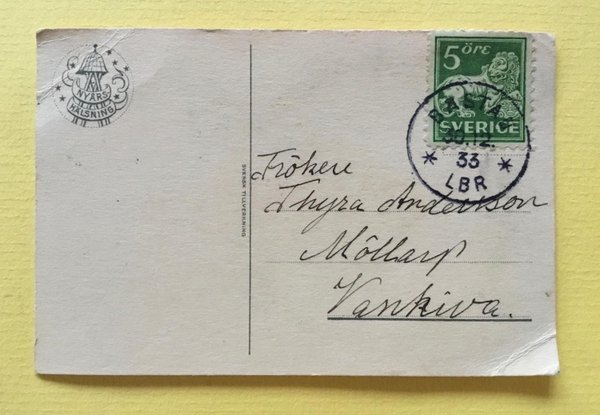 NYÅRS-
HÄLSNING
5 ÖRE
SVERIGE
33
LBR
SVENSK TILLVERKNING
Fröken
Thyra Andersson
Möllarp
Vankiva.